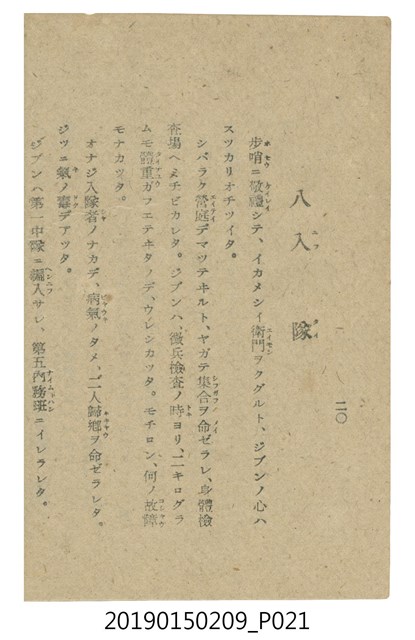 二〇
八 入隊
歩哨ニ敬禮シテ、イカメシイ衛門ヲクグルト、ジブンノ心ハ
スツカリオチツイタ。
シバラク營庭デマツテヰルト、ヤガテ集合ヲ命ゼラレ、身體檢
査場ヘミチビカレタ。ジブンハ、徴兵檢査ノ時ヨリ、二キログラ
ムモ體重ガフエテヰタノデ、ウレシカツタ。モチロン、何ノ故障
モナカツタ。
オナジ入隊者ノナカデ、病氣ノタメ、二人歸郷ヲ命ゼラレタ。
ジツニ氣ノ毒デアツタ。
ジブンハ第一中隊ニ編入サレ、第五内務班ニイレラレタ。
20190150209_P021